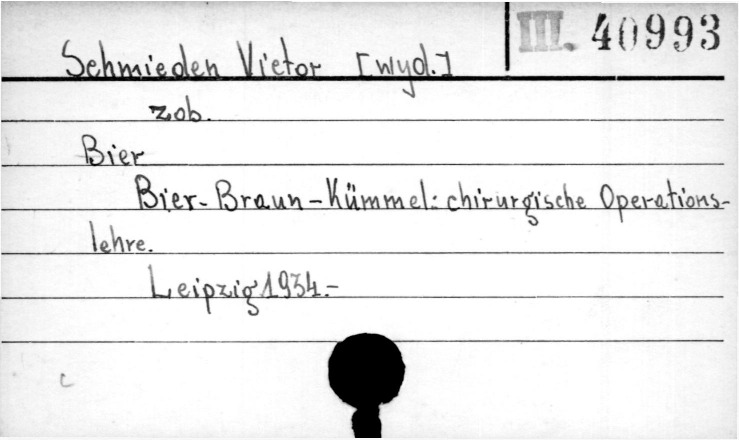 III. 40993
Schmieden Victor [wyd.]
zob.
Bier
Bier-Braun-Kümmel: chirurgische Operations-
lehre.
Leipzig 1934.-
c